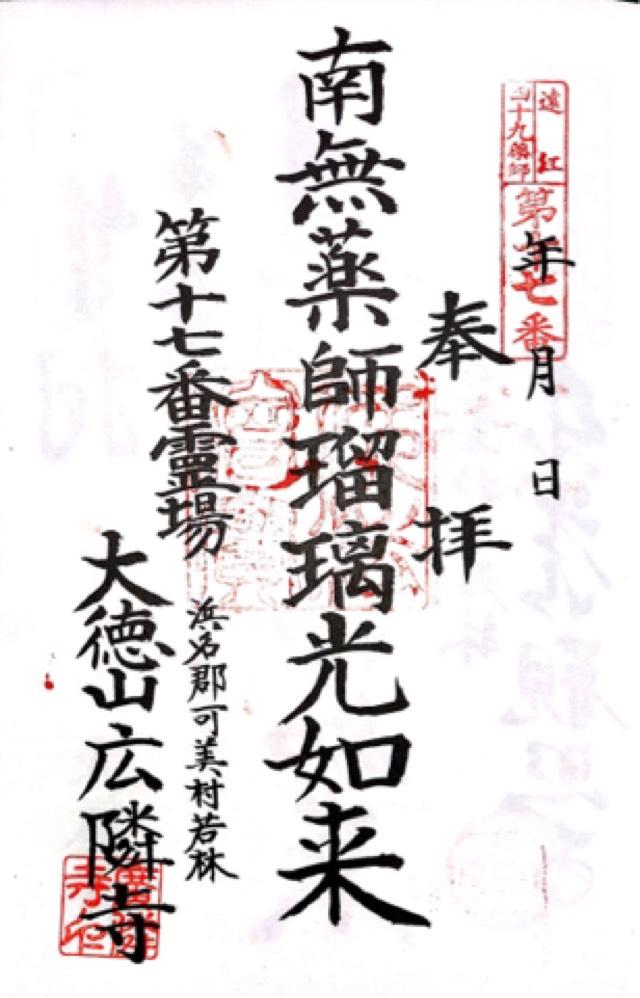 遠江
四十九薬師
第十七番
年 月 日
奉拝
南無薬師瑠璃光如来
第十七番霊場
浜名郡可美村若林
大徳山広隣寺